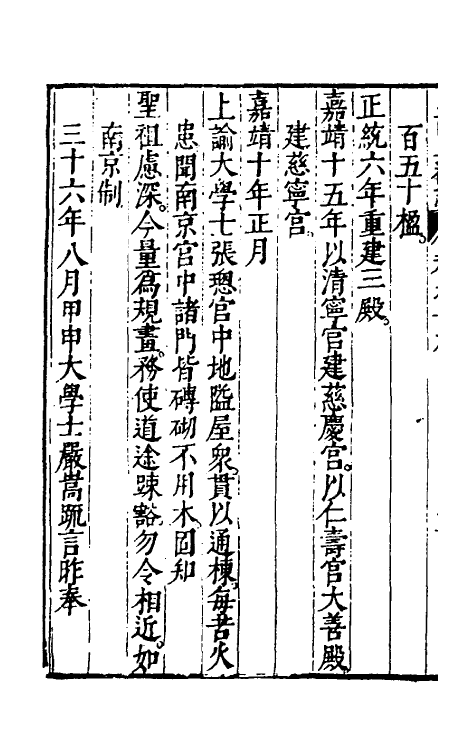 百五十楹。
正統六年重建三殿。
嘉靖十五年以清寧宮建慈慶宮。以仁壽宮大善殿
建慈寧宮。
嘉靖十年正月
上諭大學士張璁宮中地隘屋衆。貫以通棟。每苦火
患聞南京宮中諸門皆磚砌不用木。固知
聖祖慮深。今量爲規畫。務使道途疎豁。勿令相近。如
南京制
三十六年八月甲申大學士嚴嵩疏言昨奉